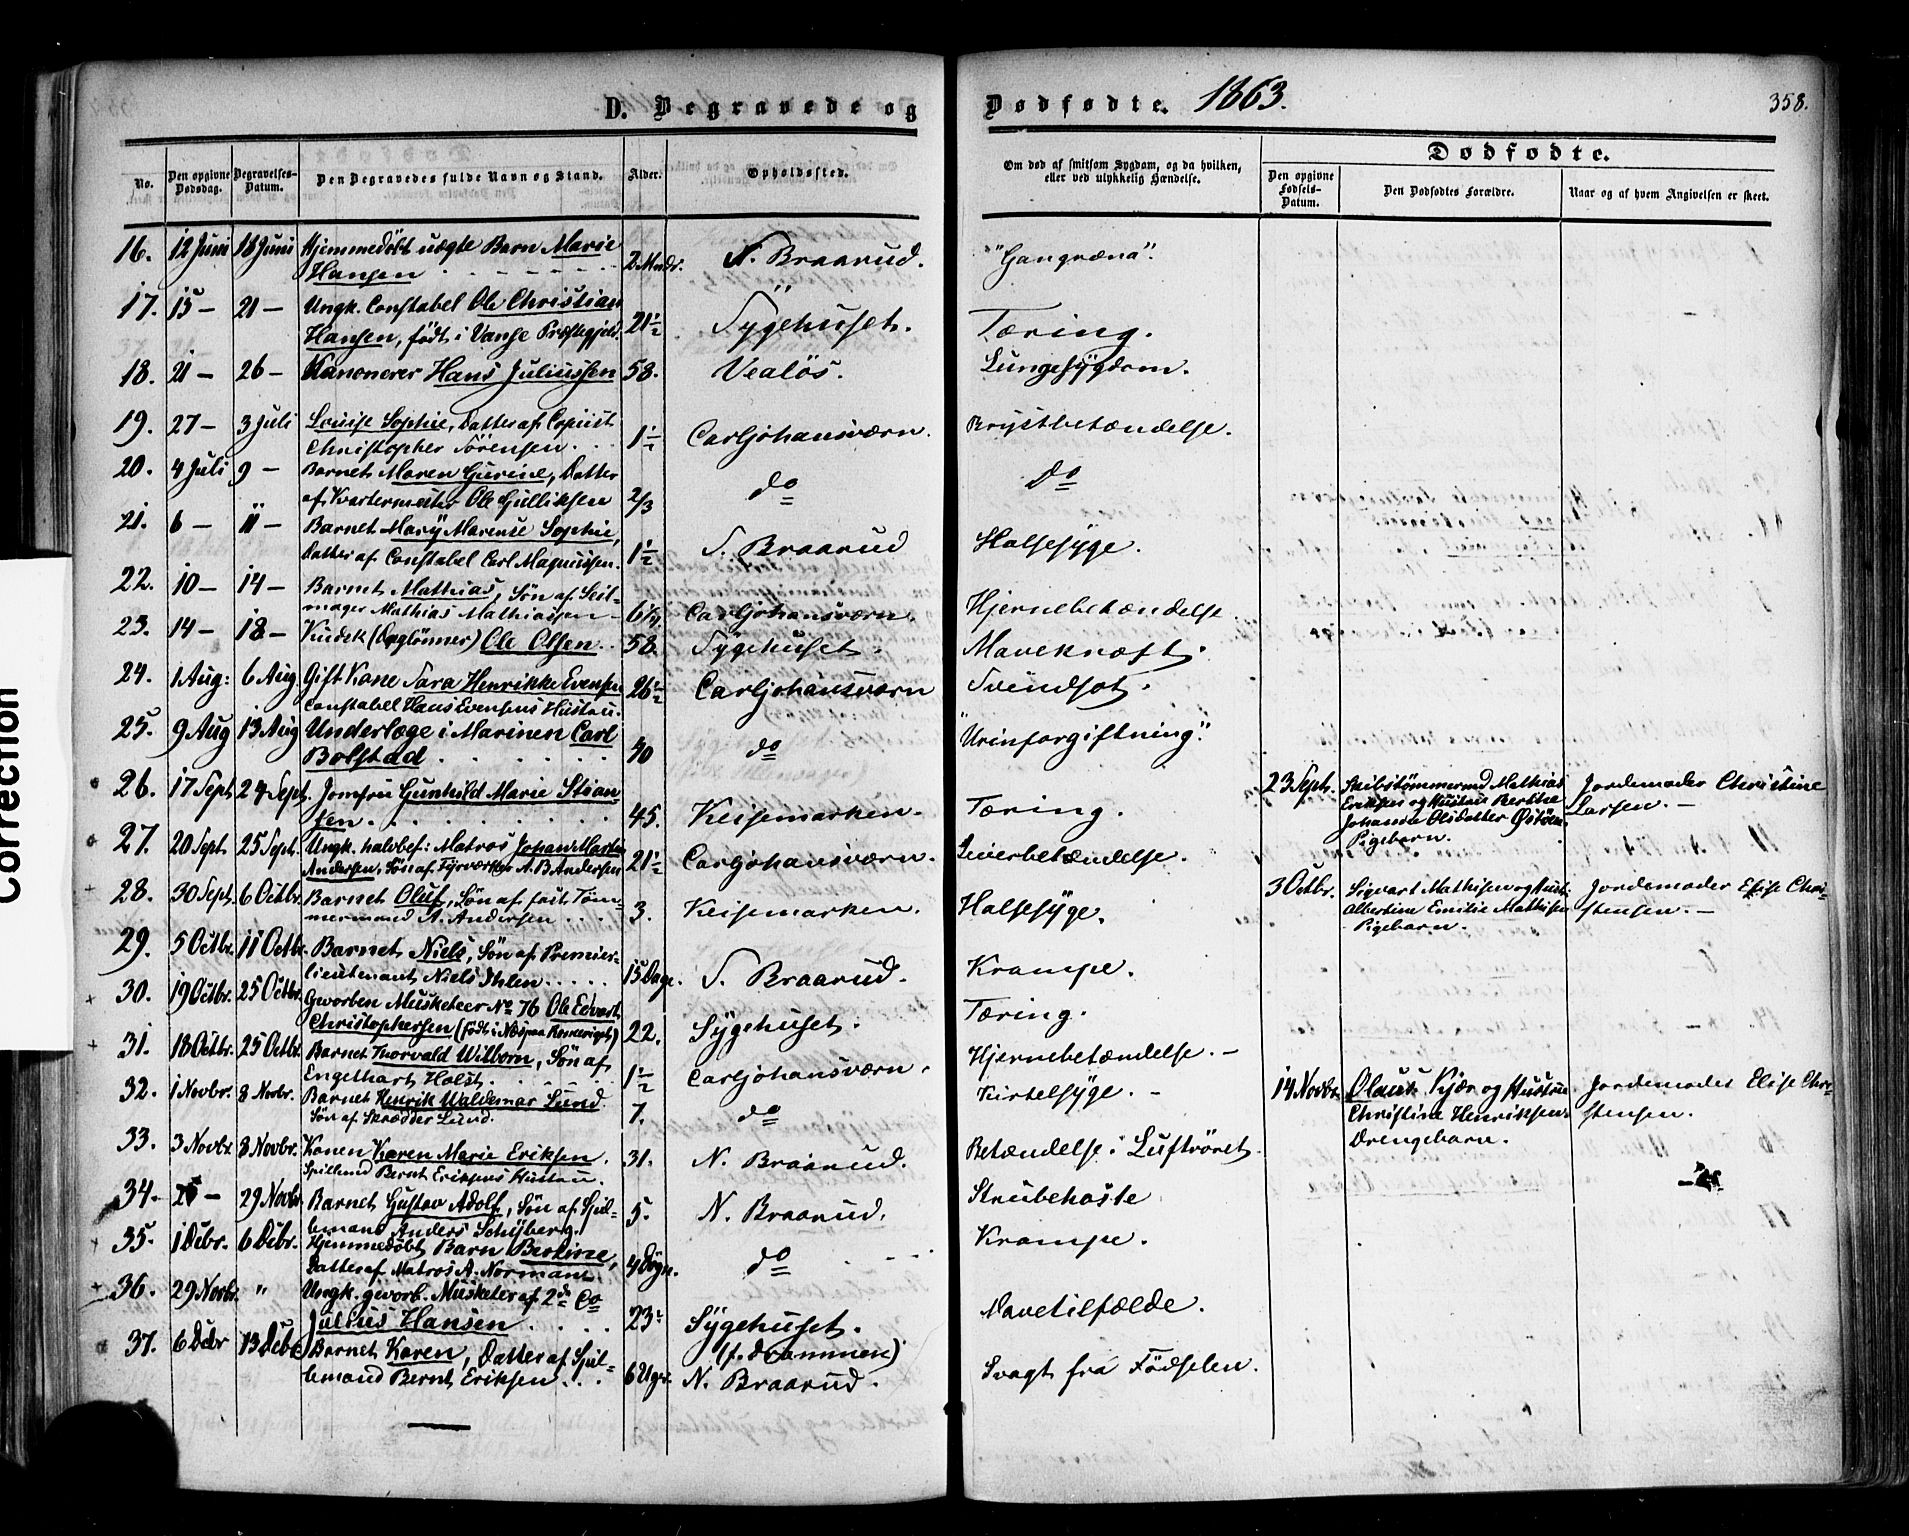 D. Begravede og
Dødfødte. 1863.
358.
No.
Den opgivne Dødsdag.
Begravelses-Datum.
Den Begravedes fulde Navn og Stand.
Alder.
Opholdssted.
Om død af smitsom Sygdom, og da hvilken, eller ved ulykkelig Hændelse.
Dødfødte.
Den opgivne Fødsels-Datum.
Den Dødfødtes Forældre.
Naar og af hvem Angivelsen er skeet.
16. 12 Juni 18 Juni Hjemmedöbt uægte Barn Marie
Hansen 2 Mndr. N. Braarud. "Gangræna".
17. 15 — 21 — Ungk. Constabel Ole Christian
Hansen, födt i Vanse Præstegjeld. 21½ Sygehuset. Tæring.
18. 21 — 26 — Kanonerer Hans Juliussen 58. Vealös. Lungesygdom.
19. 27 — 3 Juli Louise Sophie, Datter af Copiist
Christopher Sörensen 1½ Carljohansværn. Brystbetændelse.
20. 4 Juli 9 — Barnet Maren Gurine, Datter
af Kvartermester Ole Gulliksen 2/3 do Do
21. 6 — 11 — Barnet Mary Marense Sophie,
Datter af Constabel Carl Magnussen. 1½ S. Braarud Halsesyge.
22. 10 — 14 — Barnet Mathias, Sön af Seil-
mager Mathias Mathiassen Carljohansværn. Hjernebetændelse
23. 14 — 18 — (Daglönner) Ole Olsen. 58. Sygehuset. Maveknæft.
24. 1 Aug: 6 Aug. Gift Kone Sara Henrikke Evensen
Constabel Hans Evensens Hustru. 26½ Carljohansværn Svindsot.
25. 9 Aug 13 Aug Underlæge i Marinen Carl
Bolstad 40 do "Urinforgiftning".
26. 17 Sept 24 Sept. Jomfru Gunhild Marie Stian-
sen. 45. Keisemarken. Tæring.
23 Sept. Skibstömmermd Mathias
Eriksen og Hustru Berthe
Johanne Olsdatter
Pigebarn.
Jordemoder Christine
Larsen. —
27. 20 Sept. 25 Sept. Ungk. halvbef: Matros Johan Martin
Andersen, Sön af Fyrværker A. B. Andersen 21½ Carljohansværn. Leverbetændelse.
28. 30 Sept. 6 Octbr. Barnet Oluf, Sön af fast Töm-
mermand A. Andersen 3. Keisemarken. Halsesyge.
3 Octbr. Sigvart Mathisen og Hust.
Albertine Emilie Mathisen
Pigebarn.
Jordemoder Elise Chri-
stensen. —
29. 5 Octbr. 11 Octbr. Barnet Niels, Sön af Premier-
lieutenant Niels Ihlen 15 Dage. S. Braarud. Krampe.
30. 19 Octbr. 25 Octbr. Gworben Musketeer No 76 Ole Edvart
Christophersen (födt i Næs paa Romerige) 22. Sygehuset. Tæring.
31. 18 Octbr. 25 Octbr. Barnet Thorvald Wilhorn, Sön af
Engelhart Holst. 1½ Carljohansværn. Hjernebetændelse. —
32. 1 Novbr. 8 Novbr. Barnet Henrik Waldemar Lund.
Sön af Skrædder Lund. 7. do Kirtelsyge. —
14 Novbr. Olaus Kjær og Hustru
Christine Henriksen.
Drengebarn.
Jordemoder Elise Chri-
stensen.
33. 3 Novbr. 8 Novbr. Konen Karen Marie Eriksen.
Spillmd Bernt Eriksens Hustru. 31. N. Braarud. Betændelse i Luftröret.
34. — 29 Novbr. Barnet Gustav Adolf, Sön af Spil-
lemand Anders Schyberg. 5. N. Braarud. Strubehoste
35. 1 Debr. 6 Debr. Hjemmedöbt Barn Berline,
Datter af Matros A. Normann. 4 Dögn. do Krampe.
36. 29 Novbr. " Ungk. gworb. Musketer af 2de Co
Julius Hansen 23 Sygehuset. Mavetilfælde.
(f. Drammen)
37. 6 Debr 13 Debr Barnet Karen, Datter af Spil-
lemand Bernt Eriksen 6 Ugr. N. Braarud. Svagt fra Födselen.
Correction